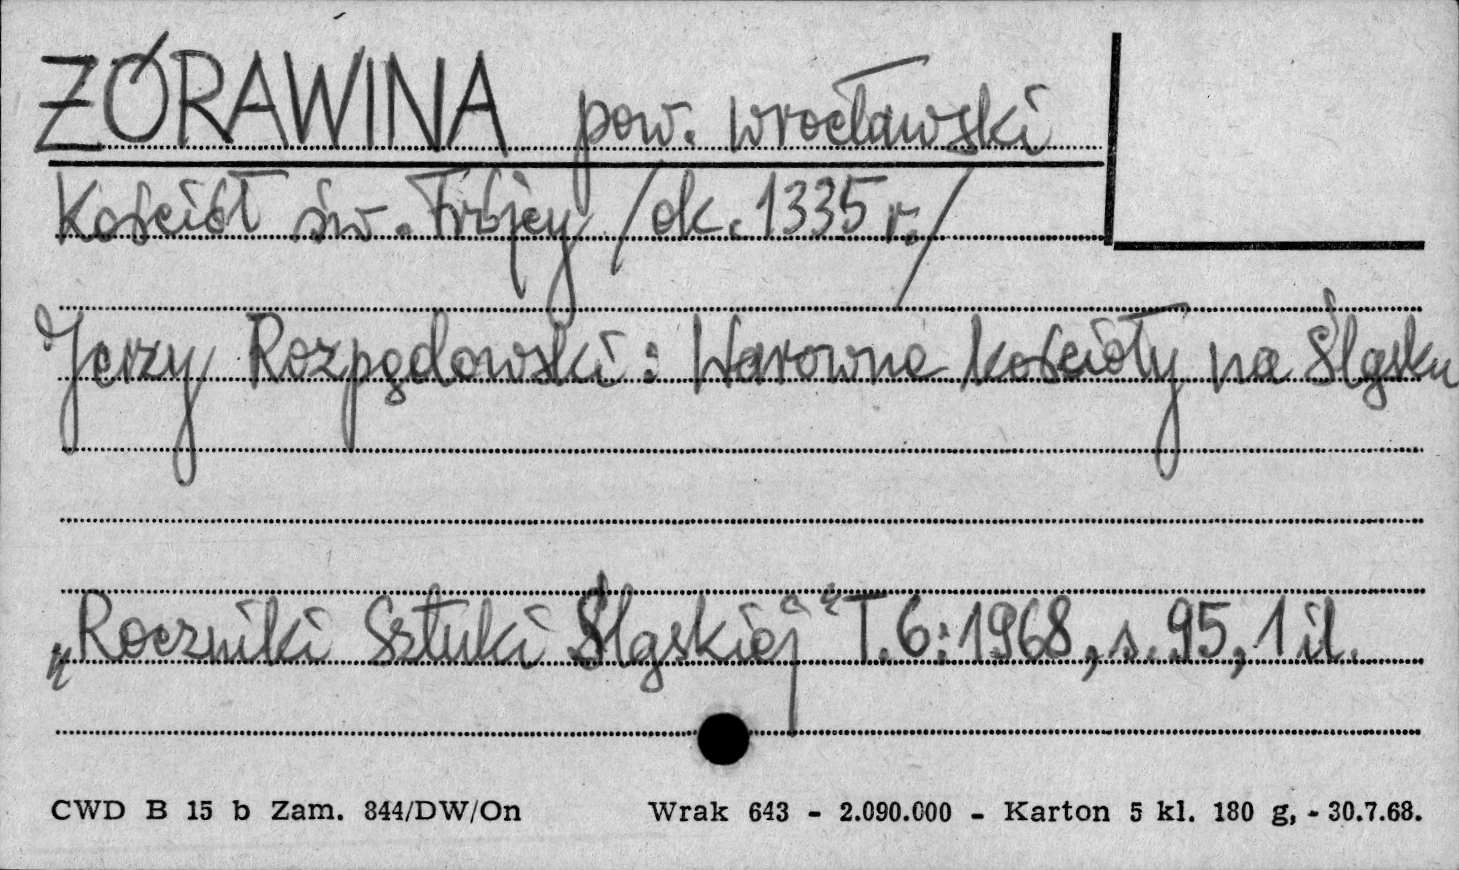 ŻÓRAWINA pow. wrocławski
Kościół św. Trójcy /ok. 1335 r./
Jerzy Rozpędowski: Warowne kościoły na Śląsku
„Roczniki Sztuki Śląskiej" T. 6: 1968, s. 95, 1 il.
CWD B 15 b Zam. 844/DW/On Wrak 643 - 2.090.000 - Karton 5 kl. 180 g, - 30.7.68.